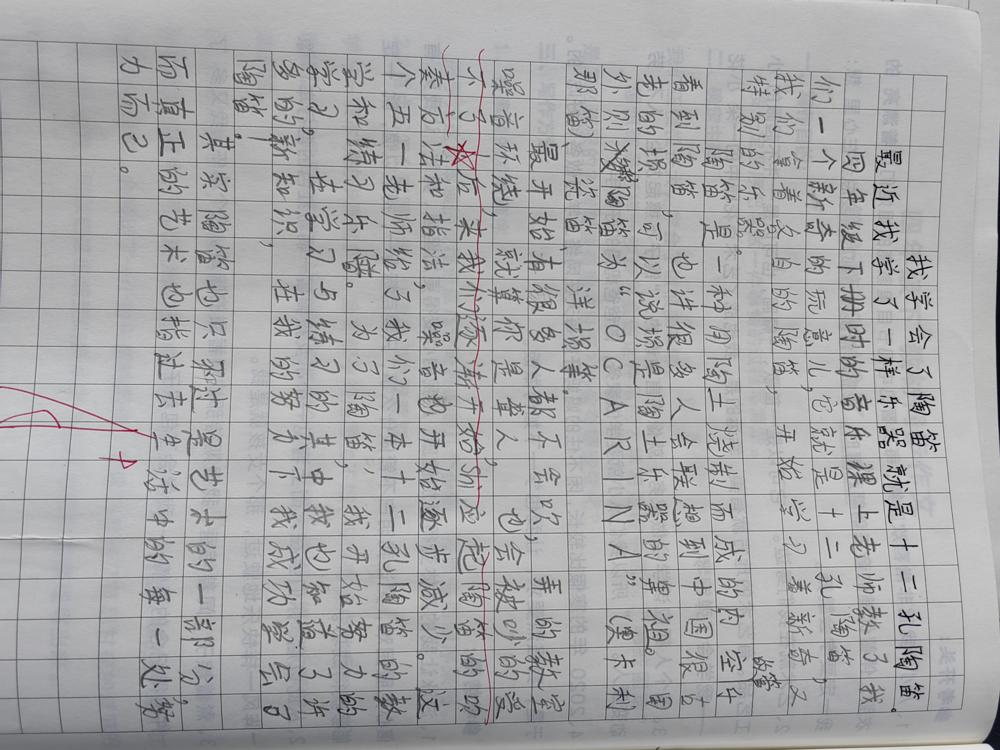 我学会了陶笛
最近我学了一样乐器就是十二孔陶笛。
四年级下册时的音乐课上老师教了我
们一个新奇的玩意儿,它就是十二孔陶笛,
我们拿着各自的陶笛,开始学习着新奇又
特别的乐器。
陶笛是一种用陶土烧制而成的内空的管乐
看到陶笛,也许很多人会联想到中国很古
老的埙,可以说埙是陶土乐器的鼻祖。国
外则称陶笛为“OCARINA”(奥卡利
那笛)、瓷笛、洋埙等。
最开始有很多人都不会吹,弄的教室
噪音环绕,就算你是聋人,也会被吵的受
不了。后来我们逐渐开始shi应起陶笛的吹
奏方法和指法,噪音也开始逐步减少。这
个五一老师给了我们一本十二孔陶笛的教
学和练习乐谱。为了陶笛,我开始努力的
学习,在学习与练习的其中我也知道了许
多的新知识,在我的努力下我成功学会了
陶笛!
其实陶笛也只不过是艺术的一部分,
而真正的艺术也指过去生活中的每一处努
力而己。
A+